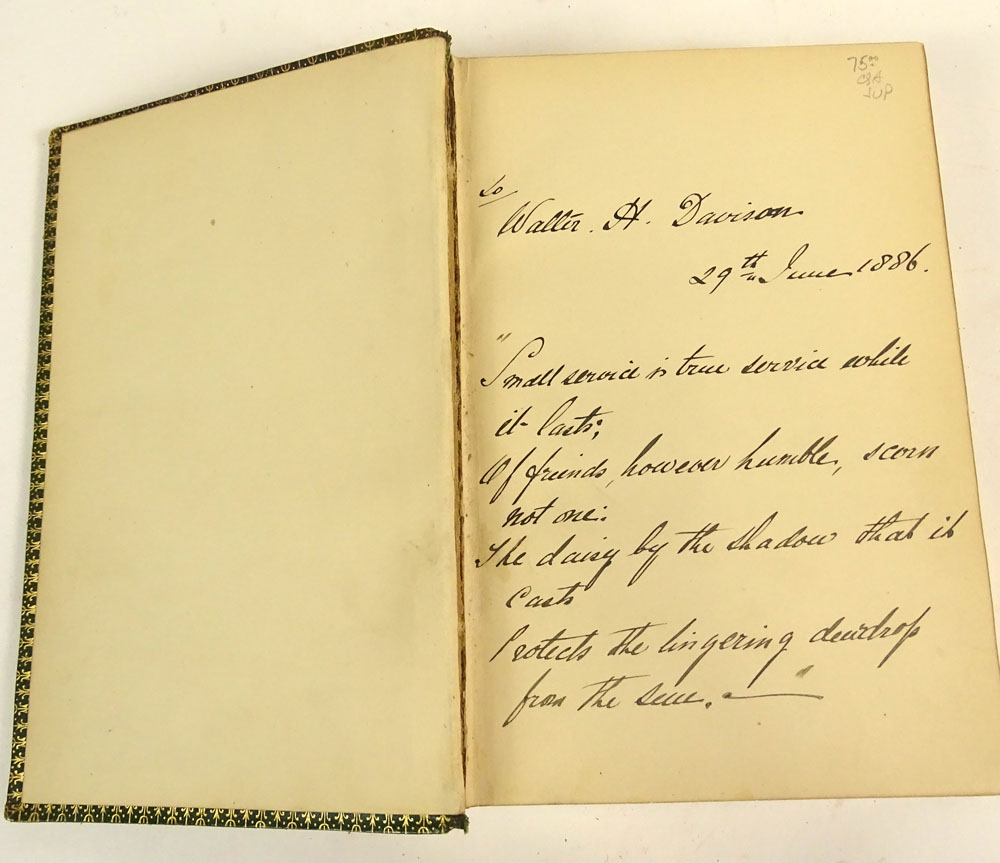 75.00
To
Walter. H. Davison
29th June 1886.
"Small service is true service while
it lasts;
Of friends, however humble, scorn
not one:
The daisy by the shadow that it
casts
Protects the lingering dewdrop
from the sun. — "